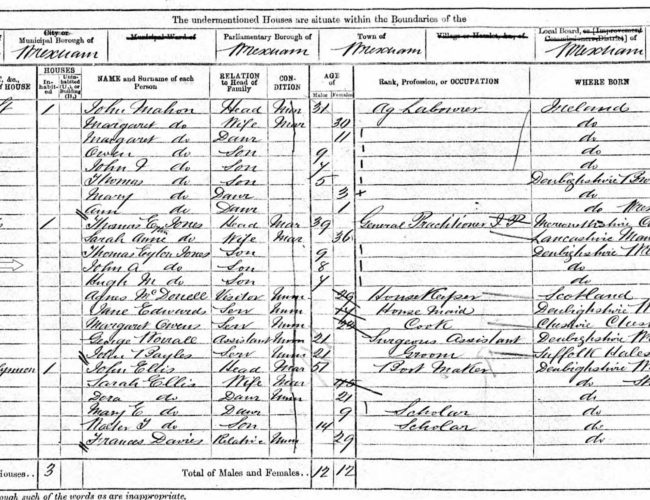 The undermentioned Houses are situate within the Boundaries of the
City or Municipal Borough of Municipal Ward of Parliamentary Borough of Town of Village or Hamlet, &c., of Local Board, or [Improvement Commissioners District] of
Wrexham Wrexham Wrexham Wrexham
HOUSES
&c., of HOUSE In-habit-ed Unin-habited (U.), or Building (B.) NAME and Surname of each Person RELATION to Head of Family CON-DITION AGE of Males Females Rank, Profession, or OCCUPATION WHERE BORN
St 1 John Mahon Head Mar 31 Ag Labourer Ireland
Margaret do Wife Mar 30 do
Margaret do Daur 11 do
Owen do Son 9 do
John do Son 4 do
Thomas do Son 5 Denbighshire
Mary do Daur 3 do
Ann do Daur 1 do Wrex
1 Thomas Jones Head Mar 39 General Practitioner Merionethshire
Sarah Anne do Wife Mar 36 Lancashire Man
Thomas Eyton Jones Son 9 Denbighshire
John A do Son 8 do
Hugh M do Son 4 do
Agnes Mc Donell Visitor Unm 29 House Keeper Scotland
Jane Edwards Serv Unm House Maid Denbighshire
Margaret Owens Serv Unm Cook Cheshire
George Worrall Assistant Unm 21 Surgeons Assistant Denbighshire
John Sayles Serv Unm 21 Groom Suffolk Hales
1 John Ellis Head Mar 51 Boot Maker Denbighshire
Sarah Ellis Wife Mar 45 do
Dora do Daur Unm 21 do
Mary E do Daur 9 Scholar do
Walter do Son 14 Scholar do
Frances Davies Relative Unm 29 do
Houses.. 3 Total of Males and Females.. 12 12
such of the words as are inappropriate.